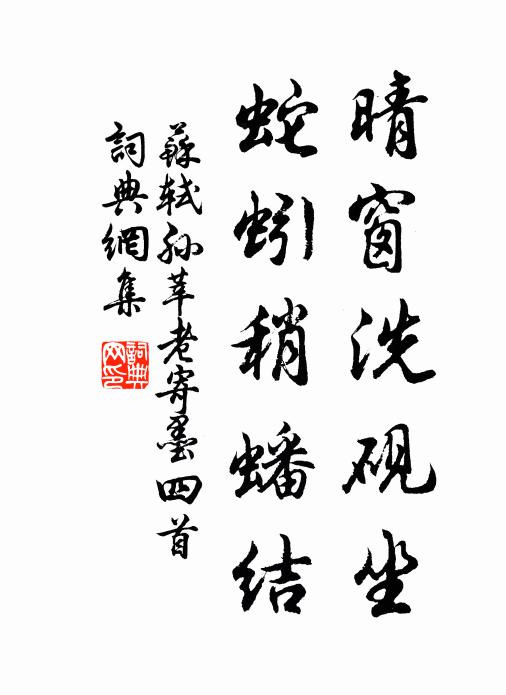 晴窗洗硯坐
蛇蚓稍蟠結
蘇軾孫莘老寄墨四首
詞典網集
詞典網印